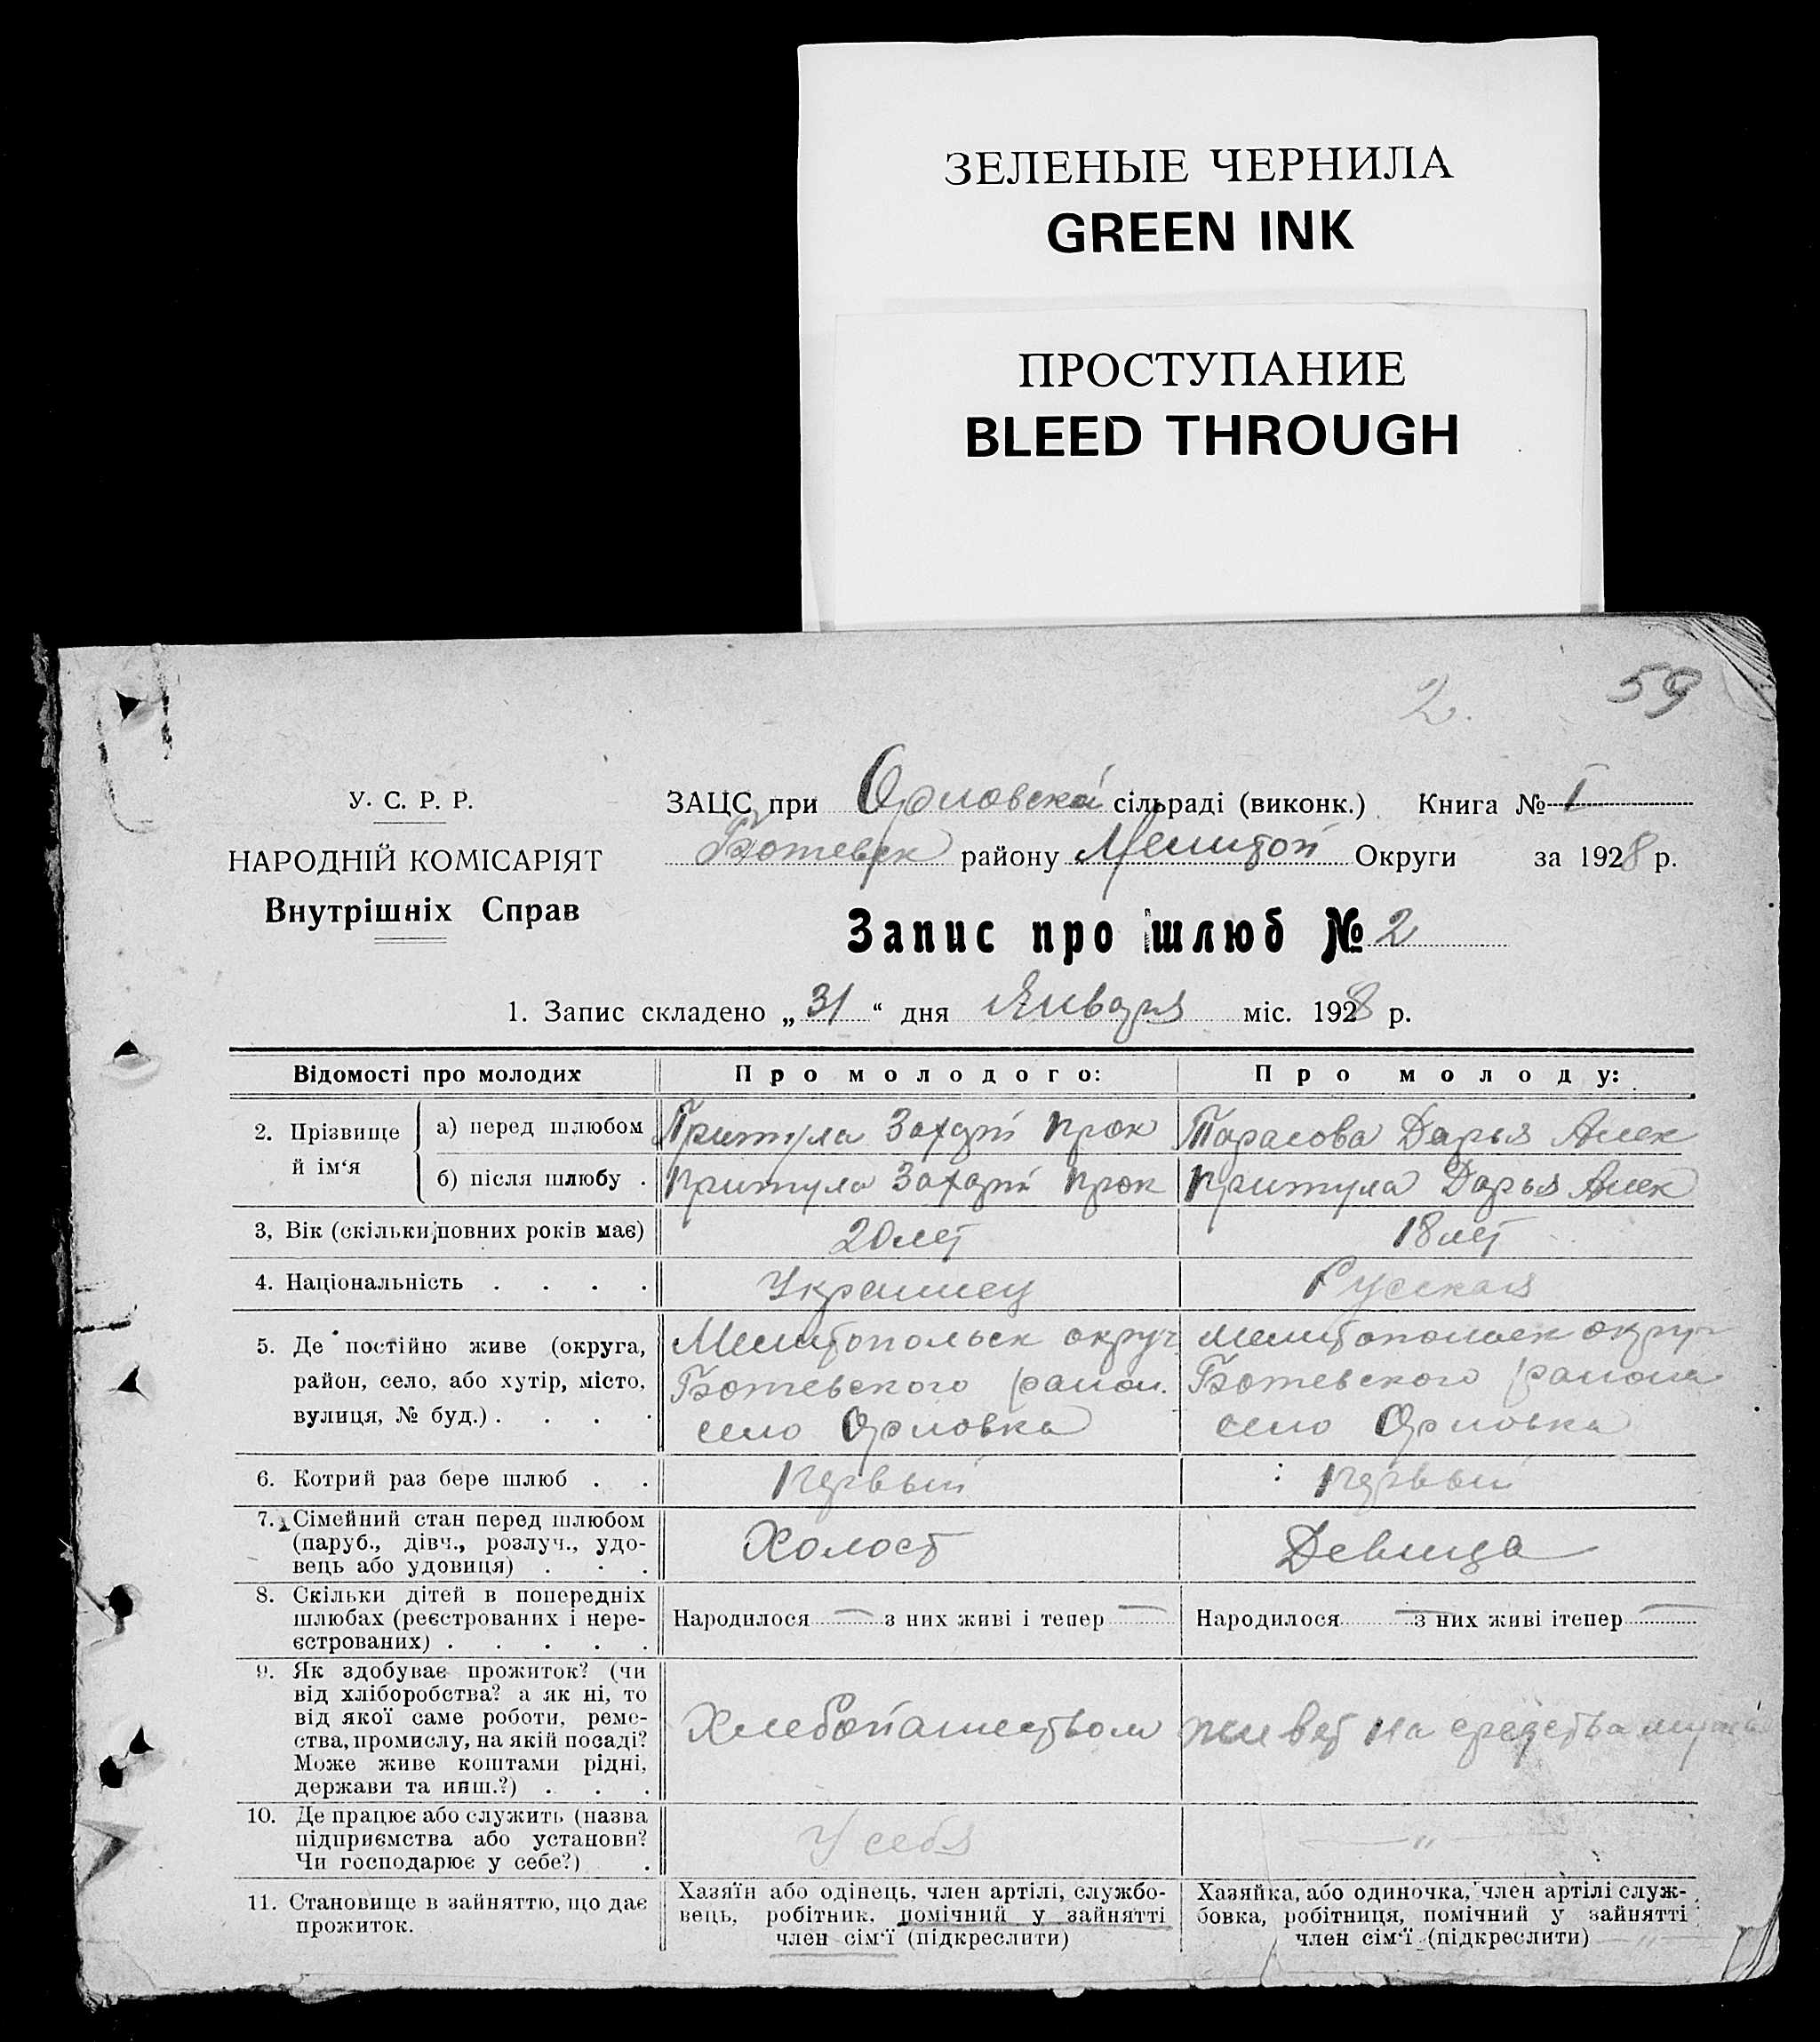 ЗЕЛЕНЫЕ ЧЕРНИЛА
GREEN INK
ПРОСТУПАНИЕ
BLEED THROUGH
2. 59
У. С. Р. Р.
НАРОДНІЙ КОМІСАРІЯТ
Внутрішніх Справ
ЗАЦС при Орловской сільраді (виконк.) Книга № I
Ботевск району Мелитоп Округи за 1928 р.
Запис про шлюб № 2
1. Запис складено „31“ дня Января міс. 1928 р.
Відомості про молодих Про молодого: Про молоду:
2. Прізвище й ім‘я
а) перед шлюбом Притула Захарій Прок Тарасова Дарья Алек
б) після шлюбу . Притула Захарій Прок Притула Дарья Алек
3, Вік (скільки повних років має) 20 лет 18 лет
4. Національність . . . . Украинец Русская
5. Де постійно живе (округа,
район, село, або хутір, місто,
вулиця, № буд.) . . . .
Мелитопольск округ
Ботевского район.
село Орловка
Мелитопольск округ
Ботевского района
село Орловка
6. Котрий раз бере шлюб . . Первый Первый
7. Сімейний стан перед шлюбом
(паруб., дівч., розлуч., удо-
вець або удовиця) . . .
Холост Девица
8. Скільки дітей в попередніх
шлюбах (реєстрованих і нере-
єстрованих) . . . . .
Народилося — з них живі і тепер —
Народилося — з них живі ітепер —
9. Як здобуває прожиток? (чи
від хліборобства? а як ні, то
від якої саме роботи, реме-
ства, промислу, на якій посаді?
Може живе коштами рідні,
держави та инш.?) . . .
Хлебопашеством живет на средства мужа
10. Де працює або служить (назва
підприємства або установи?
Чи господарює у себе?) .
У себя — „ —
11. Становище в зайняттю, що дає
прожиток.
Хазяїн або одінець, член артілі, службо-
вець, робітник, помічний у зайнятті
член сім‘ї (підкреслити)
Хазяйка, або одиночка, член артілі служ-
бовка, робітниця, помічний у зайнятті
член сім‘ї (підкреслити) — „ —